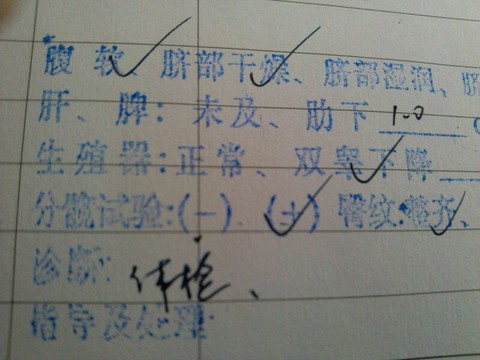 腹软、脐部干燥、脐部湿润、脐
肝、脾:未及、肋下 1.0 c
生殖器:正常、双睾下降
分髋试验:(-)、(+) 臀纹:整齐、
诊断: 体检、
指导及处理: